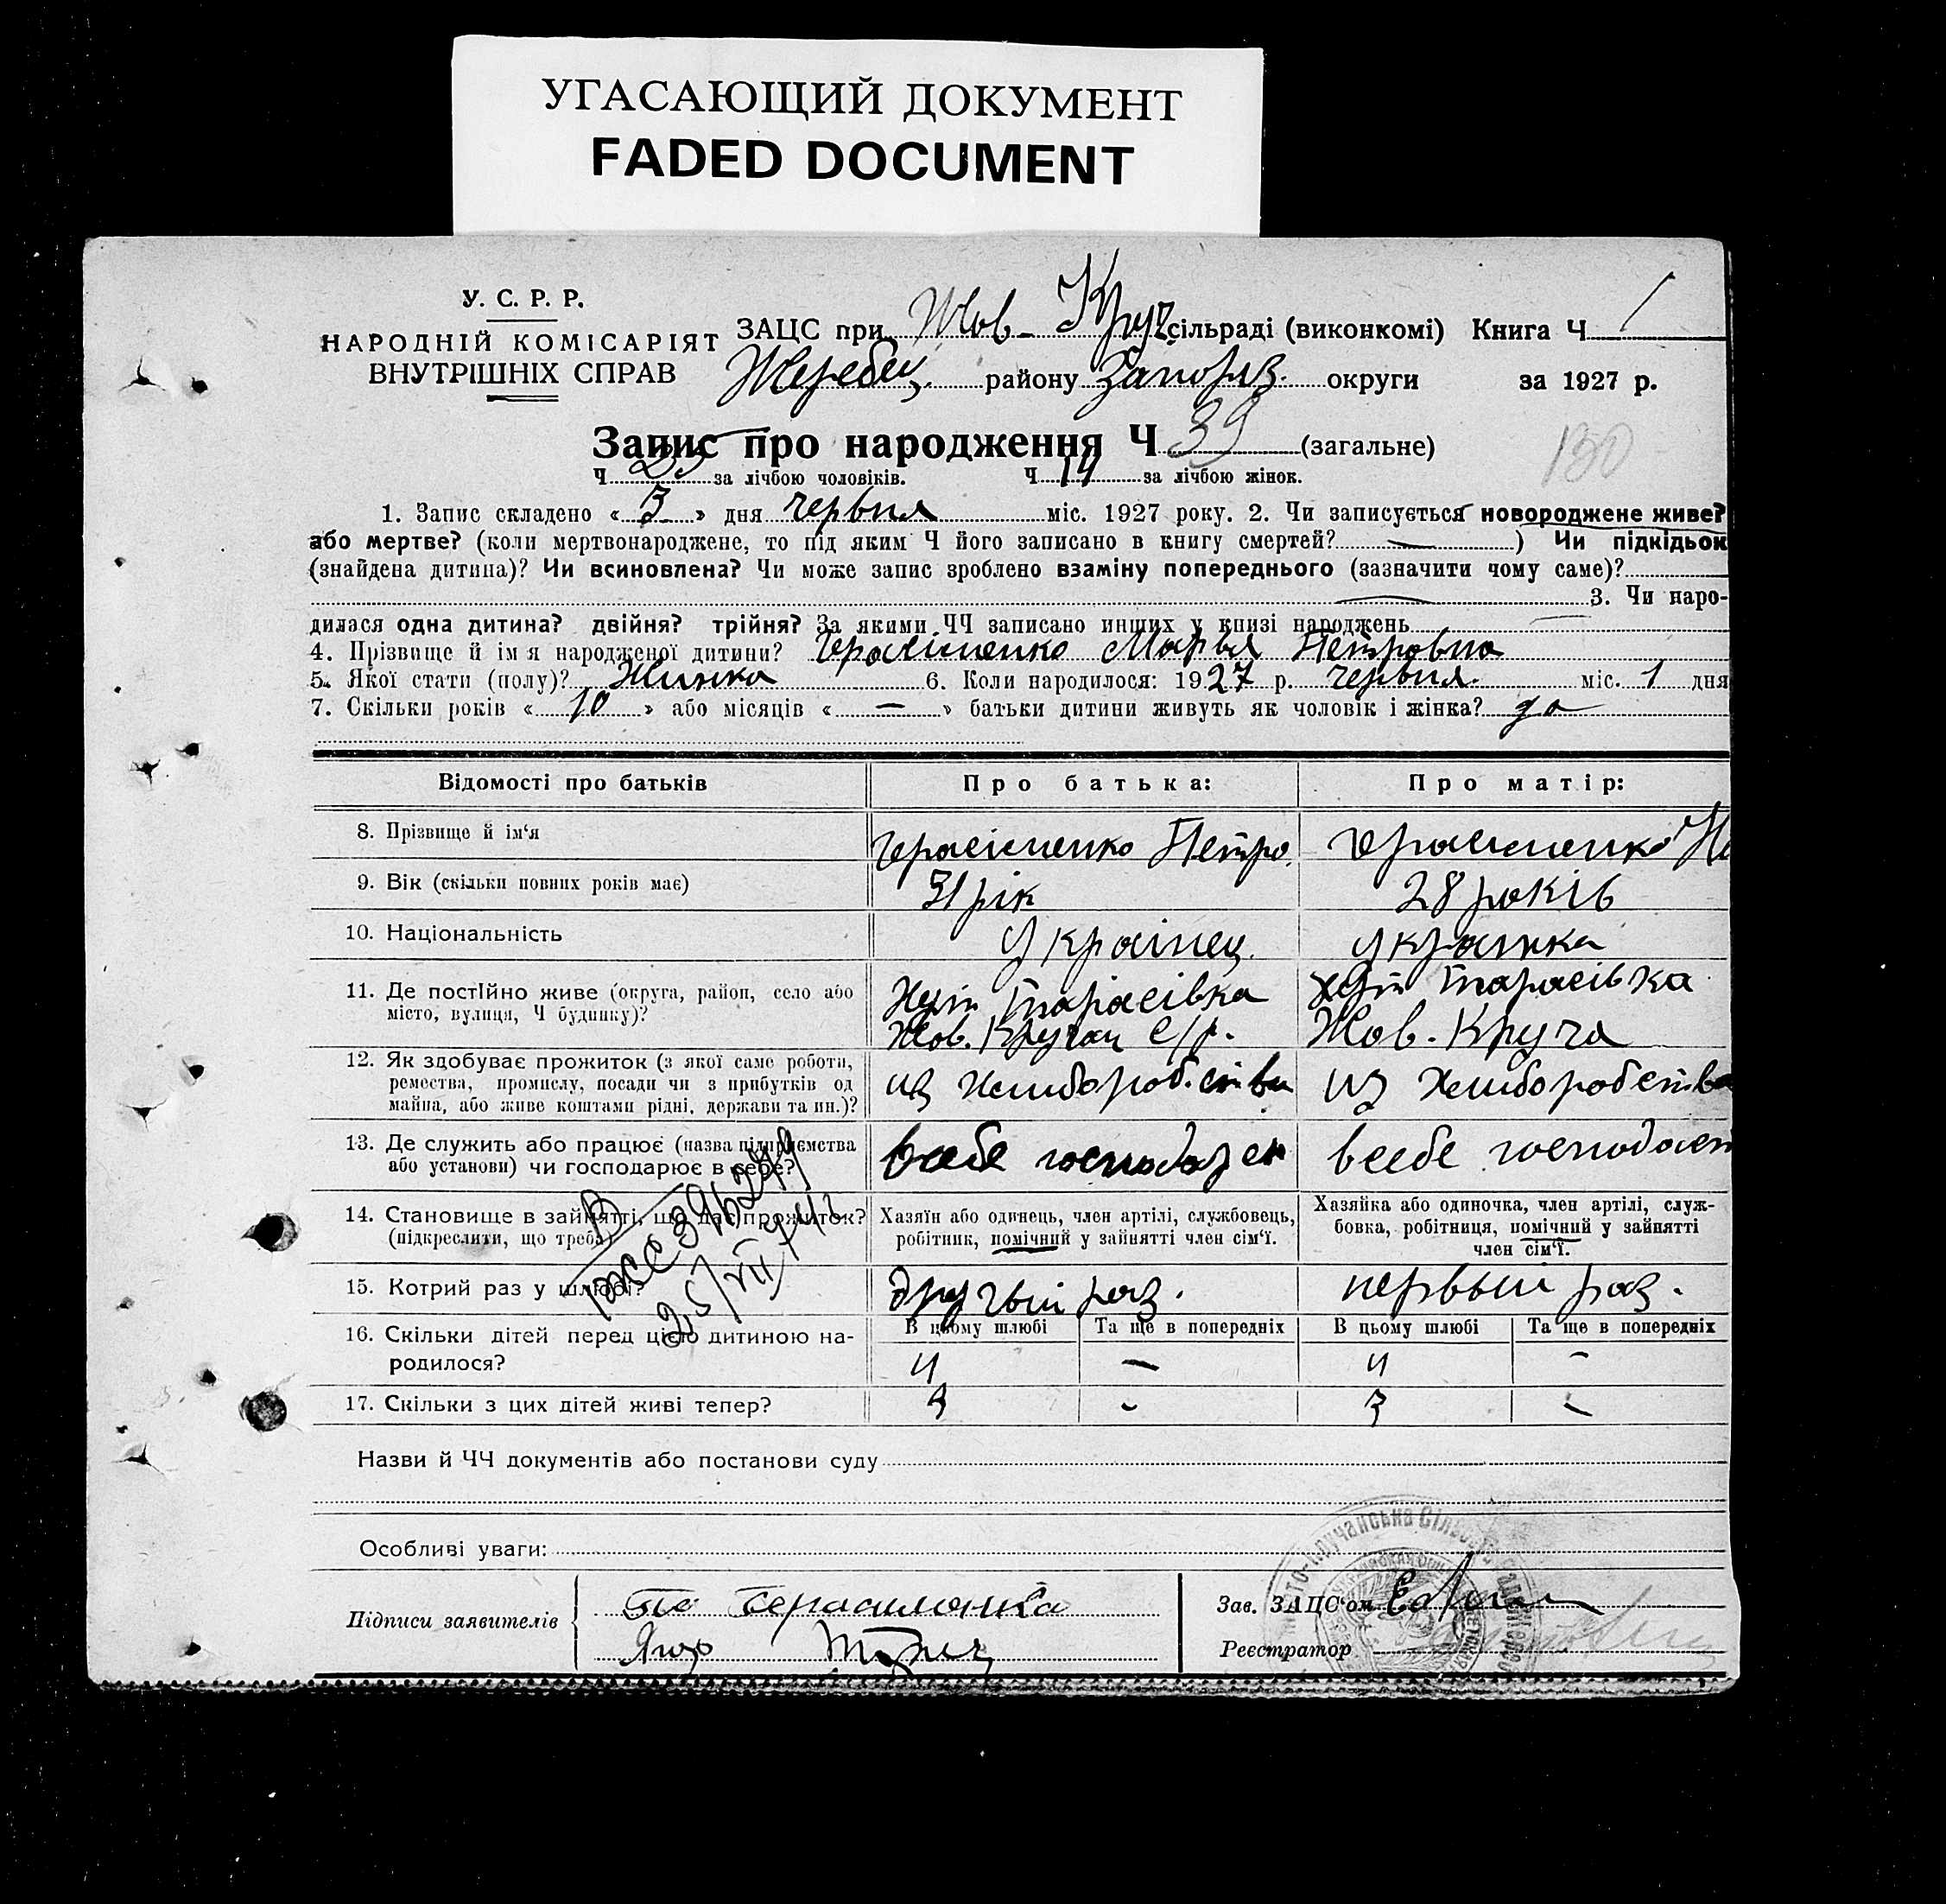 УГАСАЮЩИЙ ДОКУМЕНТ
FADED DOCUMENT
У. С. Р. Р.
НАРОДНІЙ КОМІСАРІЯТ
ВНУТРІШНІХ СПРАВ
ЗАЦС при Жов-Круч. сільраді (виконкомі) Книга Ч 1
Жеребец. району Запоріз. округи за 1927 р.
Запис про народження Ч 39 (загальне)
130
Ч 25 за лічбою чоловіків. Ч 14 за лічбою жінок.
1. Запис складено « 3 » дня червня міс. 1927 року. 2. Чи записується новороджене живе?
або мертве? (коли мертвонароджене, то під яким Ч його записано в книгу смертей? — ) Чи підкідьок
(знайдена дитина)? Чи всиновлена? Чи може запис зроблено взаміну попереднього (зазначити чому саме)?
— 3. Чи наро-
дилася одна дитина? двійня? трійня? За якими ЧЧ записано инших у книзі народжень —
4. Прізвище й ім'я народженої дитини? Герасіменко Марья Петровна
5. Якої стати (полу)? Жинка 6. Коли народилося: 1927 р. червня. міс. 1 дня
7. Скільки років « 10 » або місяців « — » батьки дитини живуть як чоловік і жінка? да
Відомості про батьків Про батька: Про матір:
8. Прізвище й ім'я Герасіменко Петро. Герасименко
9. Вік (скільки повних років має) 31 рік 28 років
10. Національність Українец. Українка
11. Де постійно живе (округа, район, село або Хут Тарасівка Хут Тарасівка
місто, вулиця, Ч будинку)? Жов. Кручан с/р. Жов. Круча
12. Як здобуває прожиток (з якої саме роботи,
ремества, промислу, посади чи з прибутків од из Хлиборобства из Хлиборобства
майна, або живе коштами рідні, держави та ин.)?
13. Де служить або працює (назва підприємства
або установи) чи господарює в себе? всебе господарси всебе господаст
14. Становище в зайнятті, що дає прожиток?
(підкреслити, що треба)
Хазяїн або одинець, член артілі, службовець,
робітник, помічний у зайнятті член сім'ї.
Хазяйка або одиночка, член артілі, служ-
бовка, робітниця, помічний у зайнятті
член сім'ї.
15. Котрий раз у шлюбі? другый раз. первый раз.
16. Скільки дітей перед цією дитиною на-
родилося?
В цьому шлюбі Та ще в попередніх В цьому шлюбі Та ще в попередніх
4 — 4 -
17. Скільки з цих дітей живі тепер? 3 - 3 -
Назви й ЧЧ документів або постанови суду
Особливі уваги:
Підписи заявителів
Герасименко
Зав. ЗАЦС'ом
Реєстратор